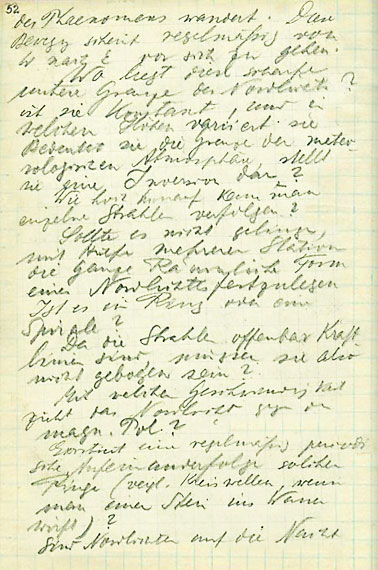 52
des Phaenomens wandert. Diese
Beweg. scheint regelmäßig von
W nach E vor sich zu gehen.
Wo liegt diese scharfe
untere Grenze des Nordlichts?
ist sie Konstant, und in
welchen Höhen variiert sie
Bezeichnet sie die Grenze der meteo-
rologischen Atmosphäre, stellt
sie eine Inversion dar?
Wie hoch hinauf kann man
einzelne Strahlen verfolgen?
Sollte es nicht gelingen,
mit Hilfe mehrerer Station
die ganze Räumliche Form
eines Nordlichts festzulegen
Ist es ein Ring oder eine
Spirale?
Da die Strahlen offenbar Kraft
linien sind, müssen sie also
nicht gebogen sein?
Mit welcher Geschwindigkeit
zieht das Nordlicht gegen den
magn. Pol?
Existiert eine regelmäßig periodi
sche Aufeinanderfolge solcher
Ringe (vergl. Kreiswellen, wenn
man einen Stein ins Wasser
wirft)?
Sind Nordlichter auf die Nacht